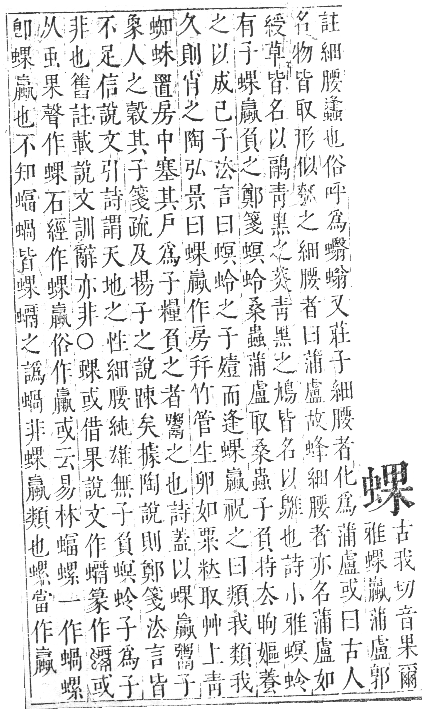 蜾
古我切音果爾
雅蜾蠃蒲盧郭
註細腰蠭也俗呼為蠮螉又莊子細腰者化為蒲盧或曰古人
名物皆取形似匏之細腰者曰蒲盧故蜂細腰者亦名蒲盧如
綬草皆名以鷊青黑之菼青黑之鳩皆名以鵻也詩小雅螟蛉
有子蜾蠃負之鄭箋螟蛉桑蟲蒲盧取桑蟲子負持去呴嫗養
之以成己子法言曰螟蛉之子殪而逢蜾蠃祝之曰類我類我
久則肖之陶弘景曰蜾蠃作房幷竹管生卵如粟粒取艸上青
蜘蛛置房中塞其戶為子糧負之者鬻之也詩蓋以蜾蠃鬻子
象人之穀其子箋疏及楊子之說踈矣據陶說則鄭箋法言皆
不足信說文引詩謂天地之性細腰純雄無子負螟蛉子為子
非也舊註載說文訓辭亦非○蜾或借果說文作篆作或
从虫果聲作蜾石經作蜾蠃俗作蠃或云易林蝠螺一作蝸螺
卽蜾蠃也不知蝠蝸皆蜾之譌蝸非蜾蠃類也螺當作蠃